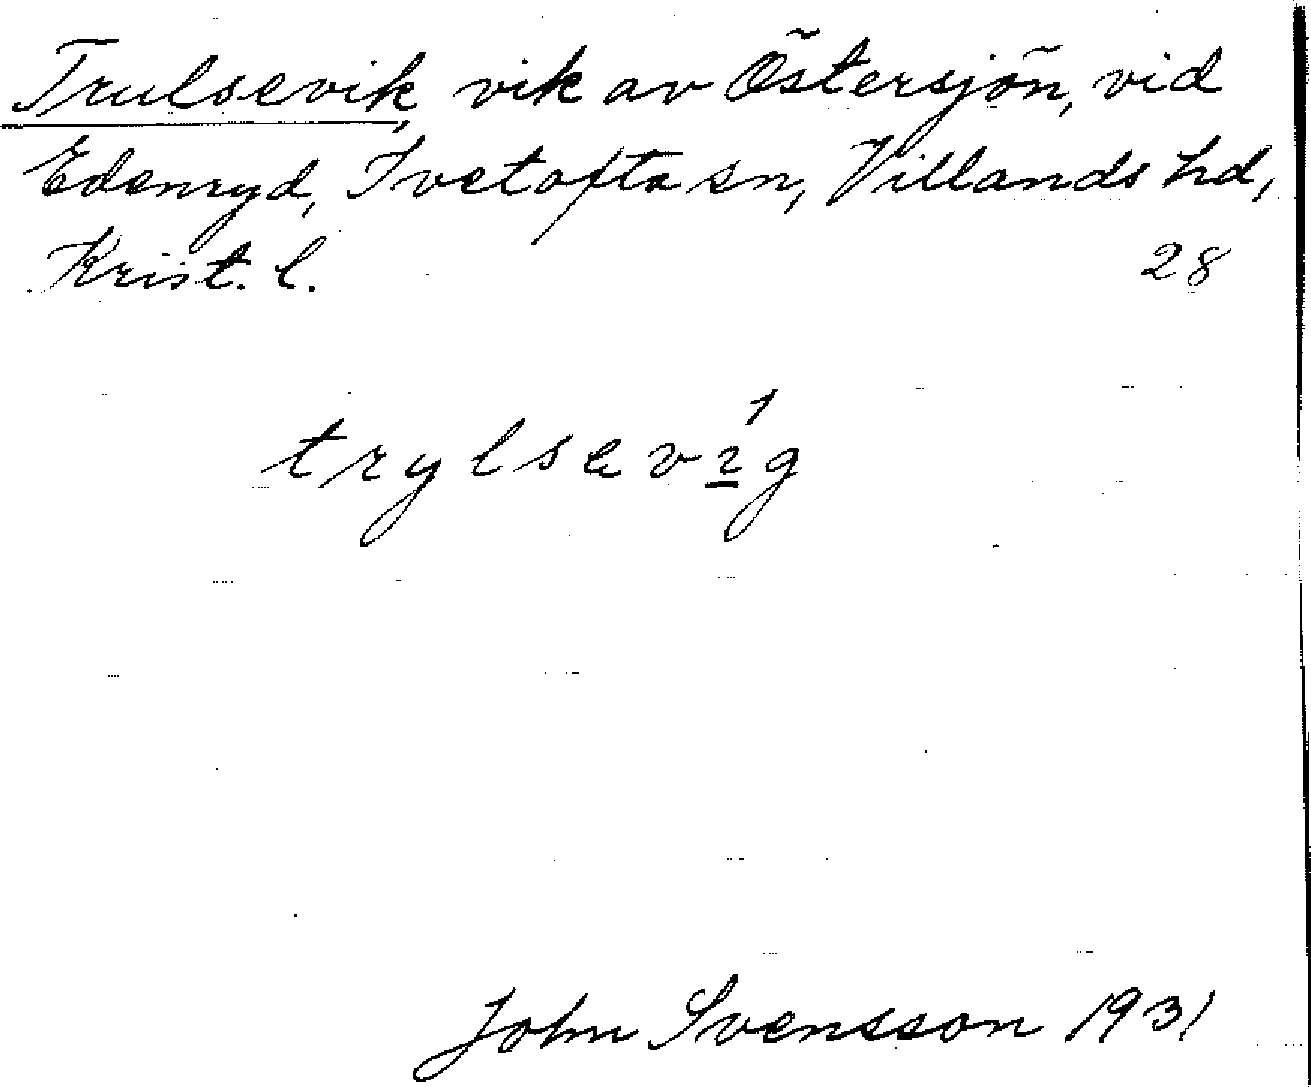 Trulsevik, vik av Östersjön, vid
Edenryd, Ivetofta sn, Villands hd,
Krist. l. 28
trylsevig
John Svensson 1931